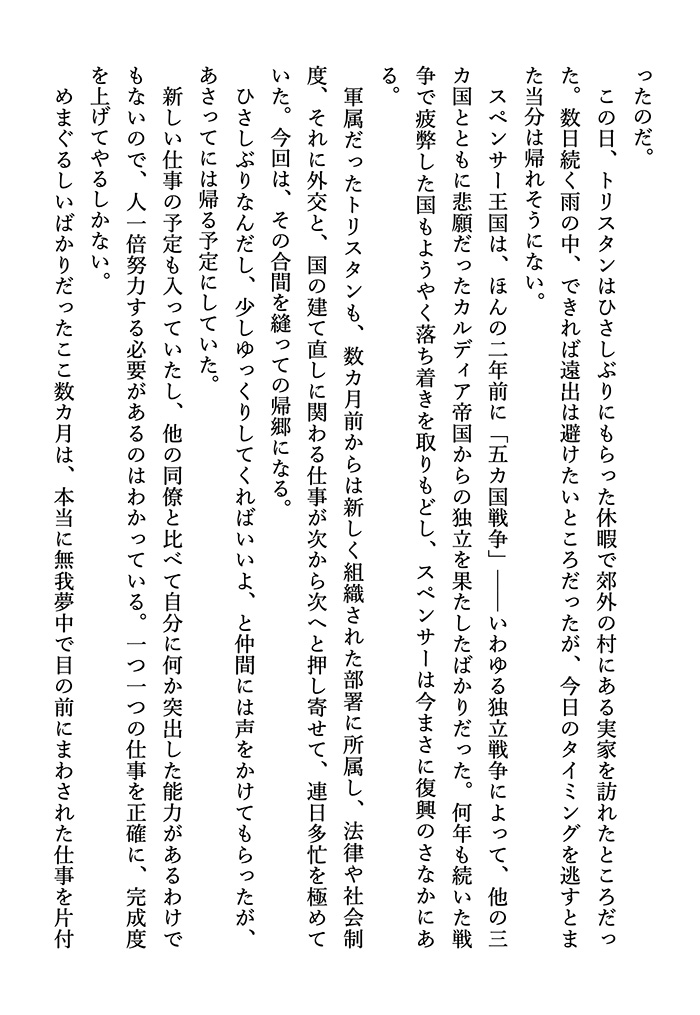 ったのだ。
　この日、トリスタンはひさしぶりにもらった休暇で郊外の村にある実家を訪れたところだっ
た。数日続く雨の中、できれば遠出は避けたいところだったが、今日のタイミングを逃すとま
た当分は帰れそうにない。
　スペンサー王国は、ほんの二年前に「五カ国戦争」――いわゆる独立戦争によって、他の三
カ国とともに悲願だったカルディア帝国からの独立を果たしたばかりだった。何年も続いた戦
争で疲弊した国もようやく落ち着きを取りもどし、スペンサーは今まさに復興のさなかにあ
る。
　軍属だったトリスタンも、数カ月前からは新しく組織された部署に所属し、法律や社会制
度、それに外交と、国の建て直しに関わる仕事が次から次へと押し寄せて、連日多忙を極めて
いた。今回は、その合間を縫っての帰郷になる。
　ひさしぶりなんだし、少しゆっくりしてくればいいよ、と仲間には声をかけてもらったが、
あさってには帰る予定にしていた。
　新しい仕事の予定も入っていたし、他の同僚と比べて自分に何か突出した能力があるわけで
もないので、人一倍努力する必要があるのはわかっている。一つ一つの仕事を正確に、完成度
を上げてやるしかない。
　めまぐるしいばかりだったここ数カ月は、本当に無我夢中で目の前にまわされた仕事を片付